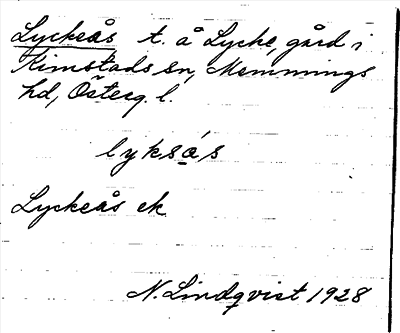 Lyckeås t. å Lycke, gård i
Kimstads sn, Memmings
hd, Österg. l.
lyksås
Lyckeås ek
N. Lindqvist 1928